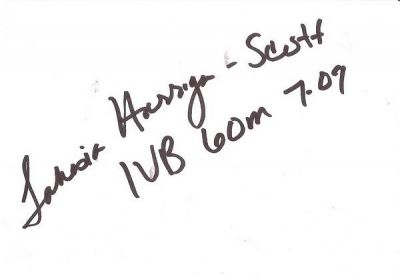 Tahesia Harrigan-Scott
IVB 60m 7.09